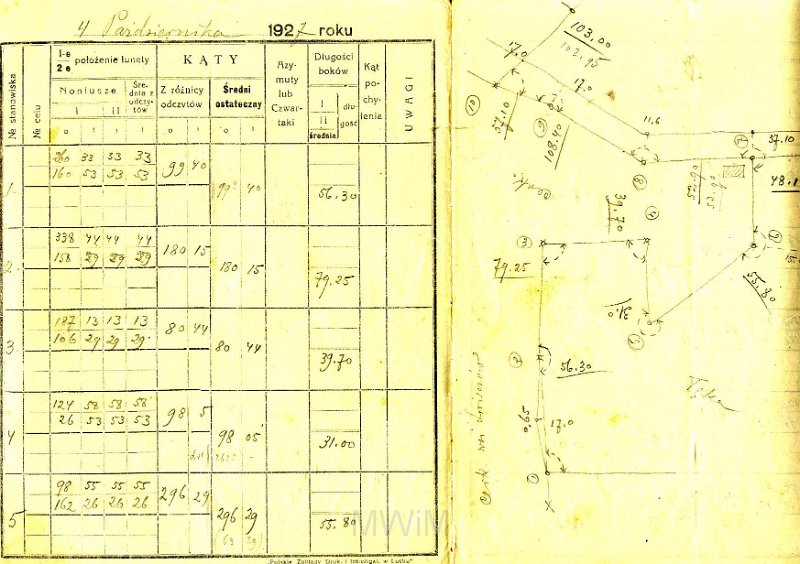 4 Października 1927 roku
№ stanowiska
№ celu
I-e
2 e
położenie lunety
Noniusze
I II
Średnia z odczytów
KĄTY
Z różnicy odczytów
Średni ostateczny
Azymuty lub Czwartaki
Długości boków
I
II
średnia
długość
Kąt pochylenia
UWAGI
o ı ı ı o ı o ı
1. 260 33 33 33 99 40
160 53 53 53
99 40 56.30
2. 338 44 49 44 180 15
158 29 29 29
180 15 79.25
3 187 13 13 13 80 44
106 29 29 29
80 44 39.70
4 124 58 58 58 98 5
26 53 53 53
98 05 31.00
5 98 55 55 55 296 29
162 26 26 26
296 29 55.80
„Polskie Zakłady Druk. i Introligat. w Łucku"
103.00
102.95
17.0
17.0
10
57.10
9
108.40
11.6
8
7
57.10
48.1
39.70
4
3
79.25
31.0
5
55.80
2
56.30
Łąka
59.0
17.0
1
MWiM